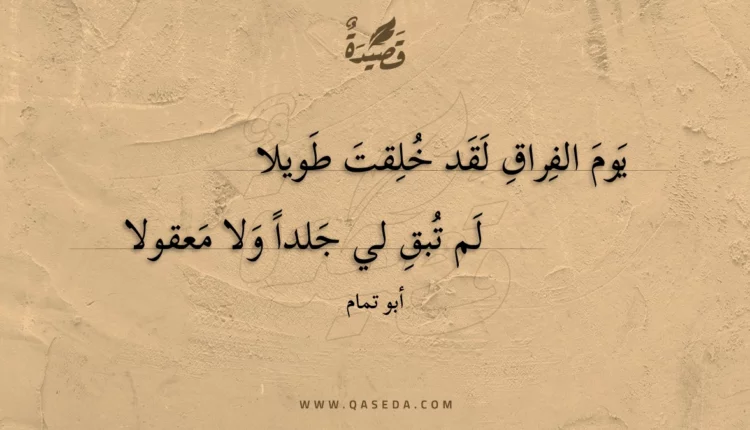 قَصِيدَةٌ
يَومَ الفِراقِ لَقَد خُلِقتَ طَويلا
لَم تُبقِ لي جَلداً وَلا مَعقولا
أبو تمام
WWW.QASEDA.COM